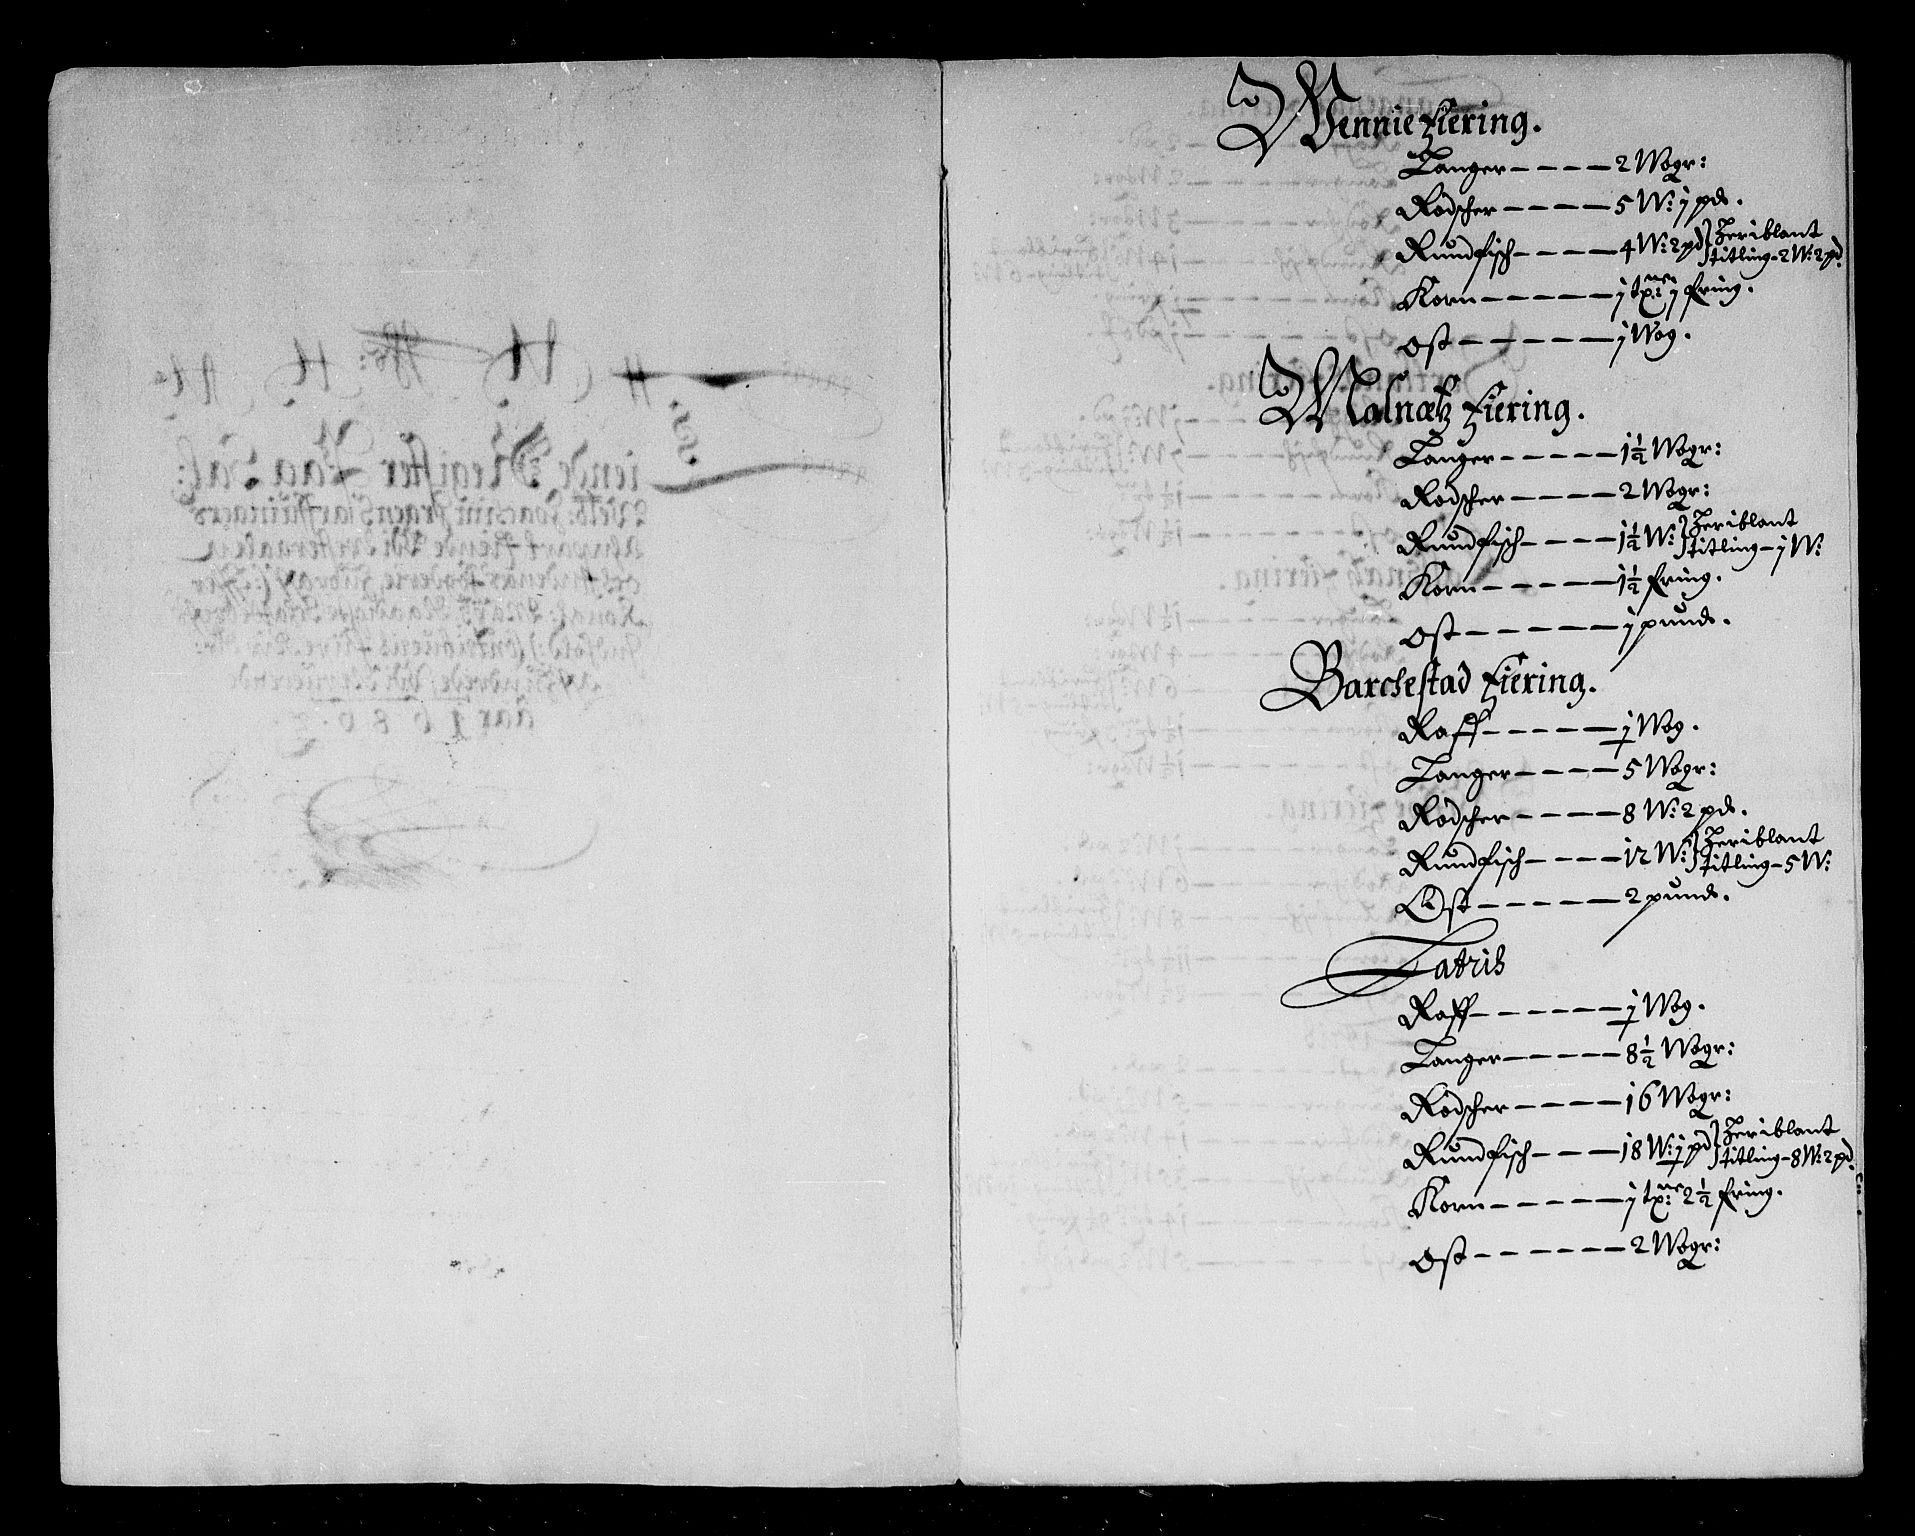 Wennie Fiering.
Langer – – – – 2 Wogr:
Rodscher – – – – 5 W: j pd.
Rundfisch – – – – 4 W: 2 pd } heriblant
titling – 2 W: 2 pd.
Korn – – – – – j tne: j fring.
Ost – – – – – – j Wog.
Malnæs Fiering.
Langer – – – – 1½ Wogr:
Rodscher – – – – 2 Wogr:
Rundfisch – – – – 1½ W: } heriblant
titling – j W:
Korn – – – – – 1½ fring.
Ost – – – – – – j pund.
Barchestad Fiering.
Raff – – – – – j Wog.
Langer – – – – 5 Wogr:
Rodscher – – – – 8 W: 2 pd.
Rundfisch – – – – 12 W: } heriblant
titling – 5 W:
Ost – – – – – – 2 pund.
Latris
Raff – – – – – – j Wog.
Langer – – – – – 8½ Wogr:
Rodscher – – – – 16 Wogr:
Rundfisch – – – 18 W: j pd } heriblant
titling – 8 W: 2 pd.
Korn – – – – – j tne: 2½ fring.
Ost – – – – – – 2 Wogr: